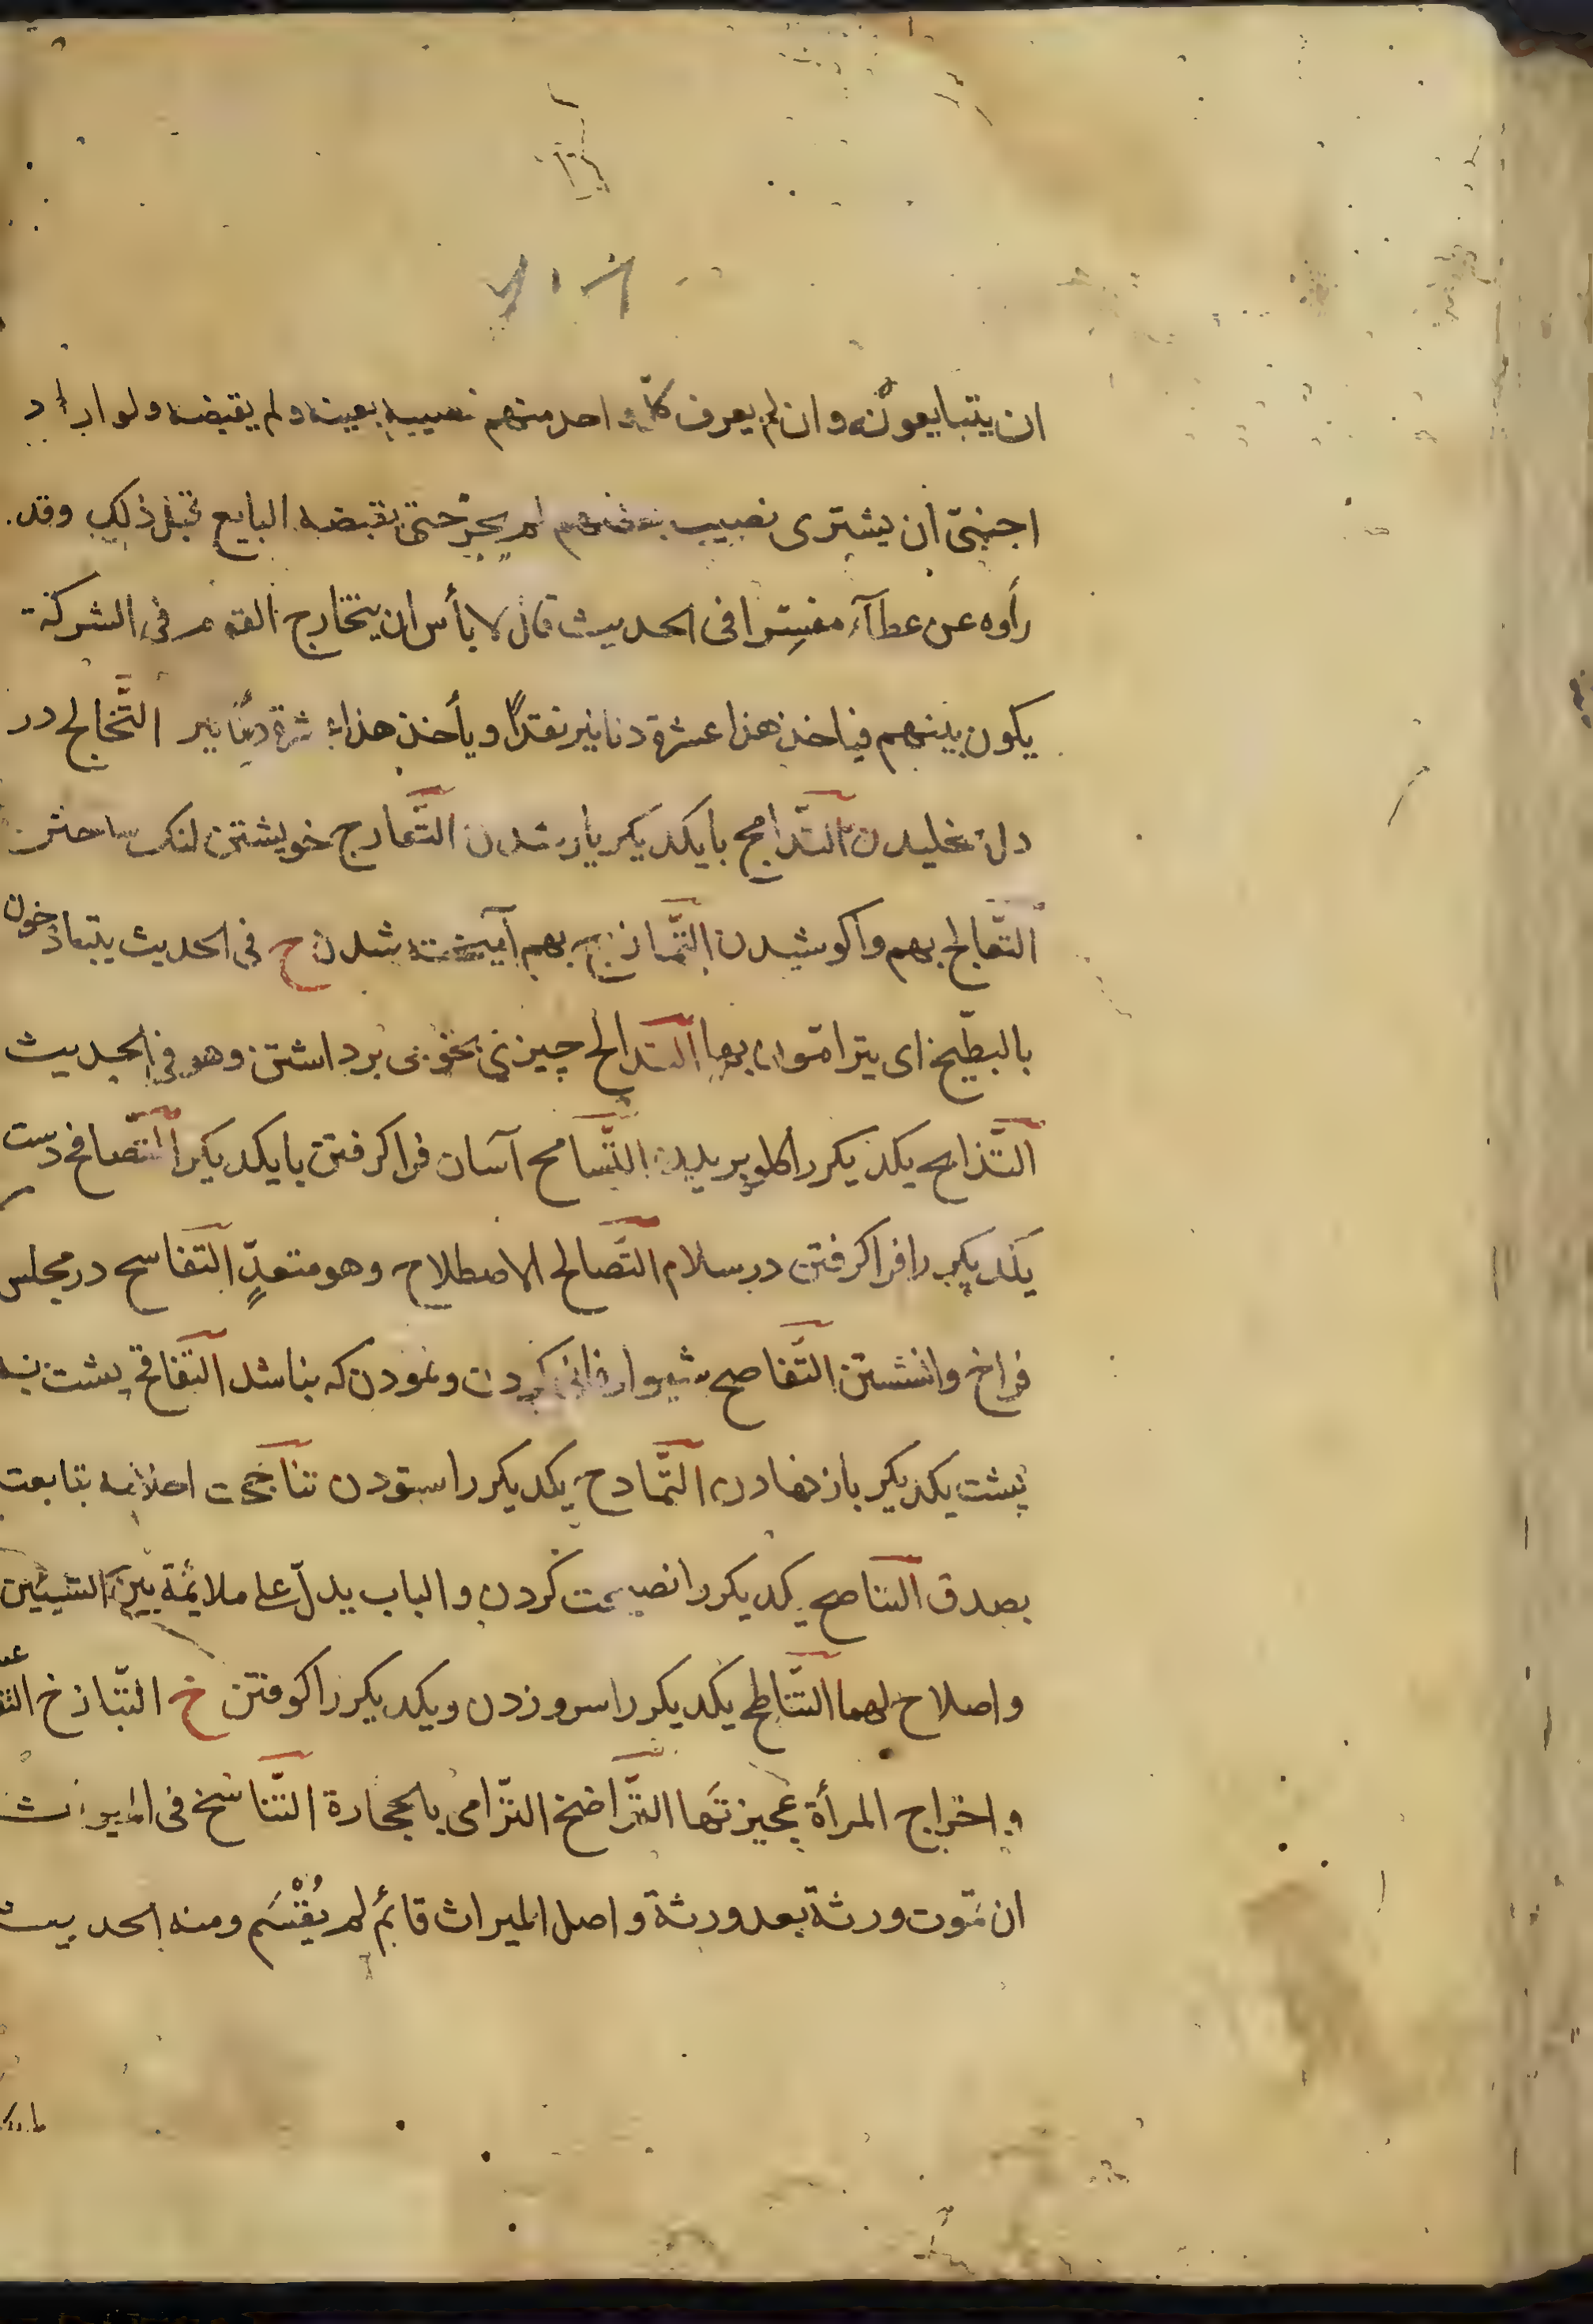 ان يتبايعونه وان لم يعرف كلّ واحد منهم نصيبه بعينه ولم يقبضه ولو اراد
اجنبىّ ان يشترى نصيب بعضهم لم يجز حتى يقبضه البايع قبل ذلك وقد
رأوه عن عطآء مفسِّرا فى الحديث قال لا بأس ان يتخارج القوم فى الشركة
يكون بينهم فياخذ هذا عشرة دنانير نقدًا ويأخذ هذا عشرة دنانير التَّخالج در
دل خليدن التَّدامج بايكديكر يار شدن التَّعارج خويشتن لنك ساختن
التَّعالج بهم واكوشيدن التَّمازج بهم آميخته شدن ح فى الحديث يتبادخون
بالبطّيخ اى يترامون بها التَّدالح چيزى بخوبى برداشتن وهو فى الحديث
التَّذابح يكديكر را كلو بريدن التَّسامح آسان فرا كرفتن بايكديكر التَّصافح دست
يكديكر را فرا كرفتن در سلام التَّصالح الاصطلاح وهو متعدٍّ التَّفاسح در مجلس
فراخ وانشستن التَّفاصح شيوا زفانى كردن ونمودن كه بناشد التَّقافح پشت به
پشت يكديكر باز نهادن التَّمادح يكديكر را ستودن تناجحت احلامه تتابعت
بصدق التَّناصح يكديكر را نصيحت كردن والباب يدلّ على ملايمة بين الشيئين
واصلاح لهما التَّناطح يكديكر را سرو زدن ويكديكر را كوفتن خ التّبازخ
واخراج المرأة عجيزتها التَّراضخ التّرامى بالحجارة التَّناسخ فى الميراث
ان تموت ورثة بعد ورثة واصل الميراث قائم لم يُقْسَم ومنه الحديث